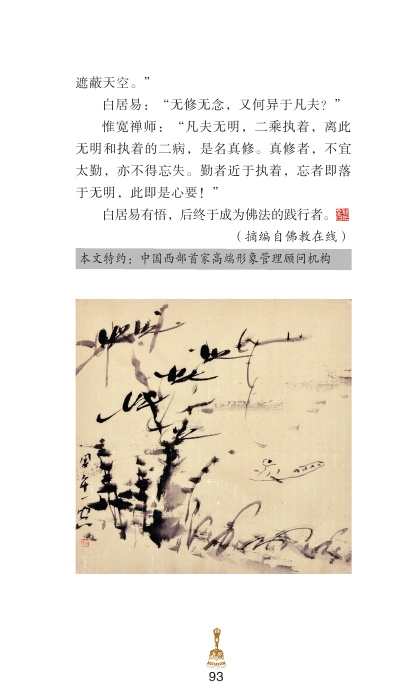 遮蔽天空。”
白居易：“无修无念，又何异于凡夫？”
惟宽禅师：“凡夫无明，二乘执着，离此
无明和执着的二病，是名真修。真修者，不宜
太勤，亦不得忘失。勤者近于执着，忘者即落
于无明，此即是心要！”
白居易有悟，后终于成为佛法的践行者。
（摘编自佛教在线）
本文特约：中国西部首家高端形象管理顾问机构
93